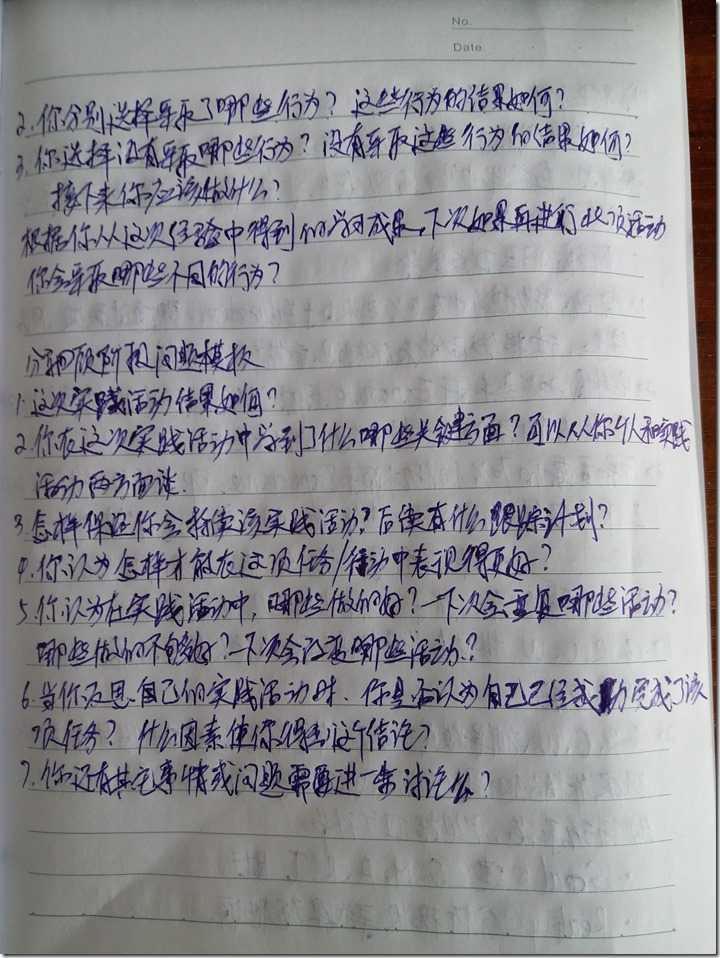 No.
Date
2.你分别选择采取了哪些行为？这些行为的结果如何？
3.你选择没有采取哪些行为？没有采取这些行为的结果如何？
接下来你应该做什么？
根据你从这次经验中得到的学习成果,下次如果再进行此项活动
你会采取哪些不同的行为？
回顾阶段问题模板
1.这次实践活动结果如何？
2.你在这次实践活动中学到了什么哪些关键方面？可以从你个人和实践
活动两方面谈.
3.怎样保证你会持续该实践活动？后续有什么跟踪计划？
4.你认为怎样才能在这项任务/行动中表现得更好？
5.你认为在实践活动中,哪些做的好？下次会重复哪些活动？
哪些做的不够好？下次会改变哪些活动？
6.当你反思自己的实践活动时.你是否认为自己已经成功完成了该
项任务？什么因素使你得出这个结论？
7.你还有其它事情或问题需要进一步讨论么？